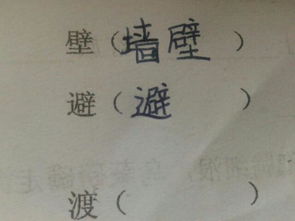 壁（墙壁）
避（避　）
渡（　）